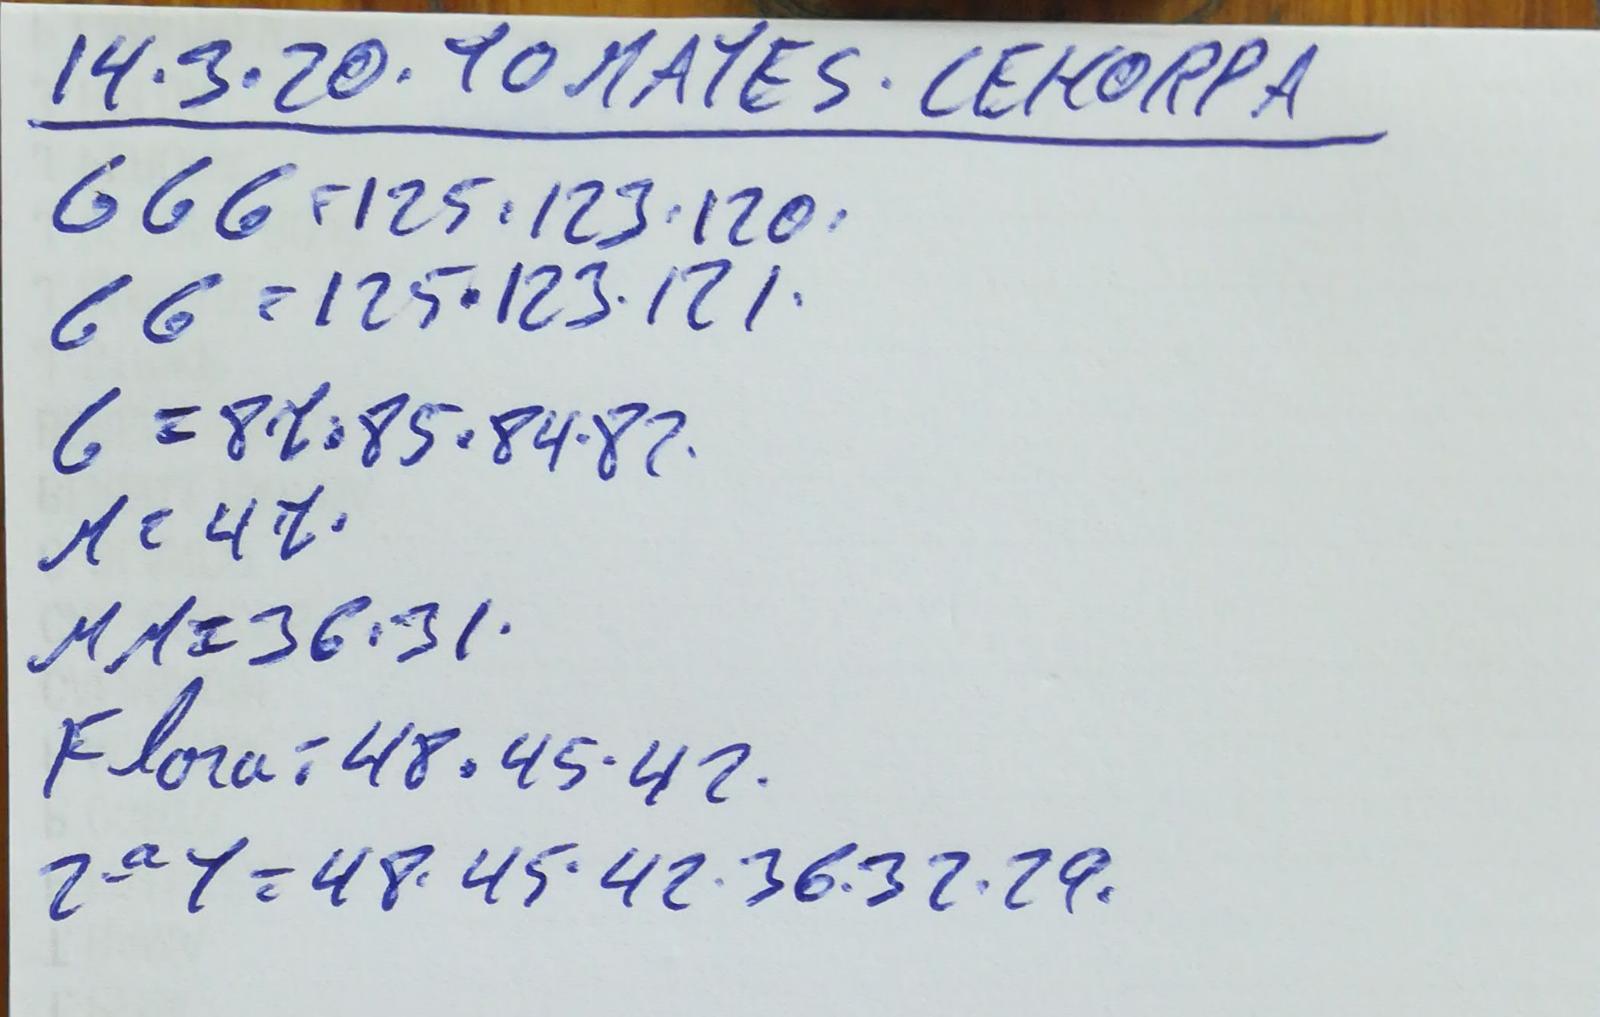 14.3.20. TOMATES. CEHORPA
GGG = 125.123.120.
GG = 125.123.121.
G = 87.85.84.82.
M = 47.
MM = 36.31.
Flora = 48.45.42.
2ª T = 48.45.42.36.32.29.